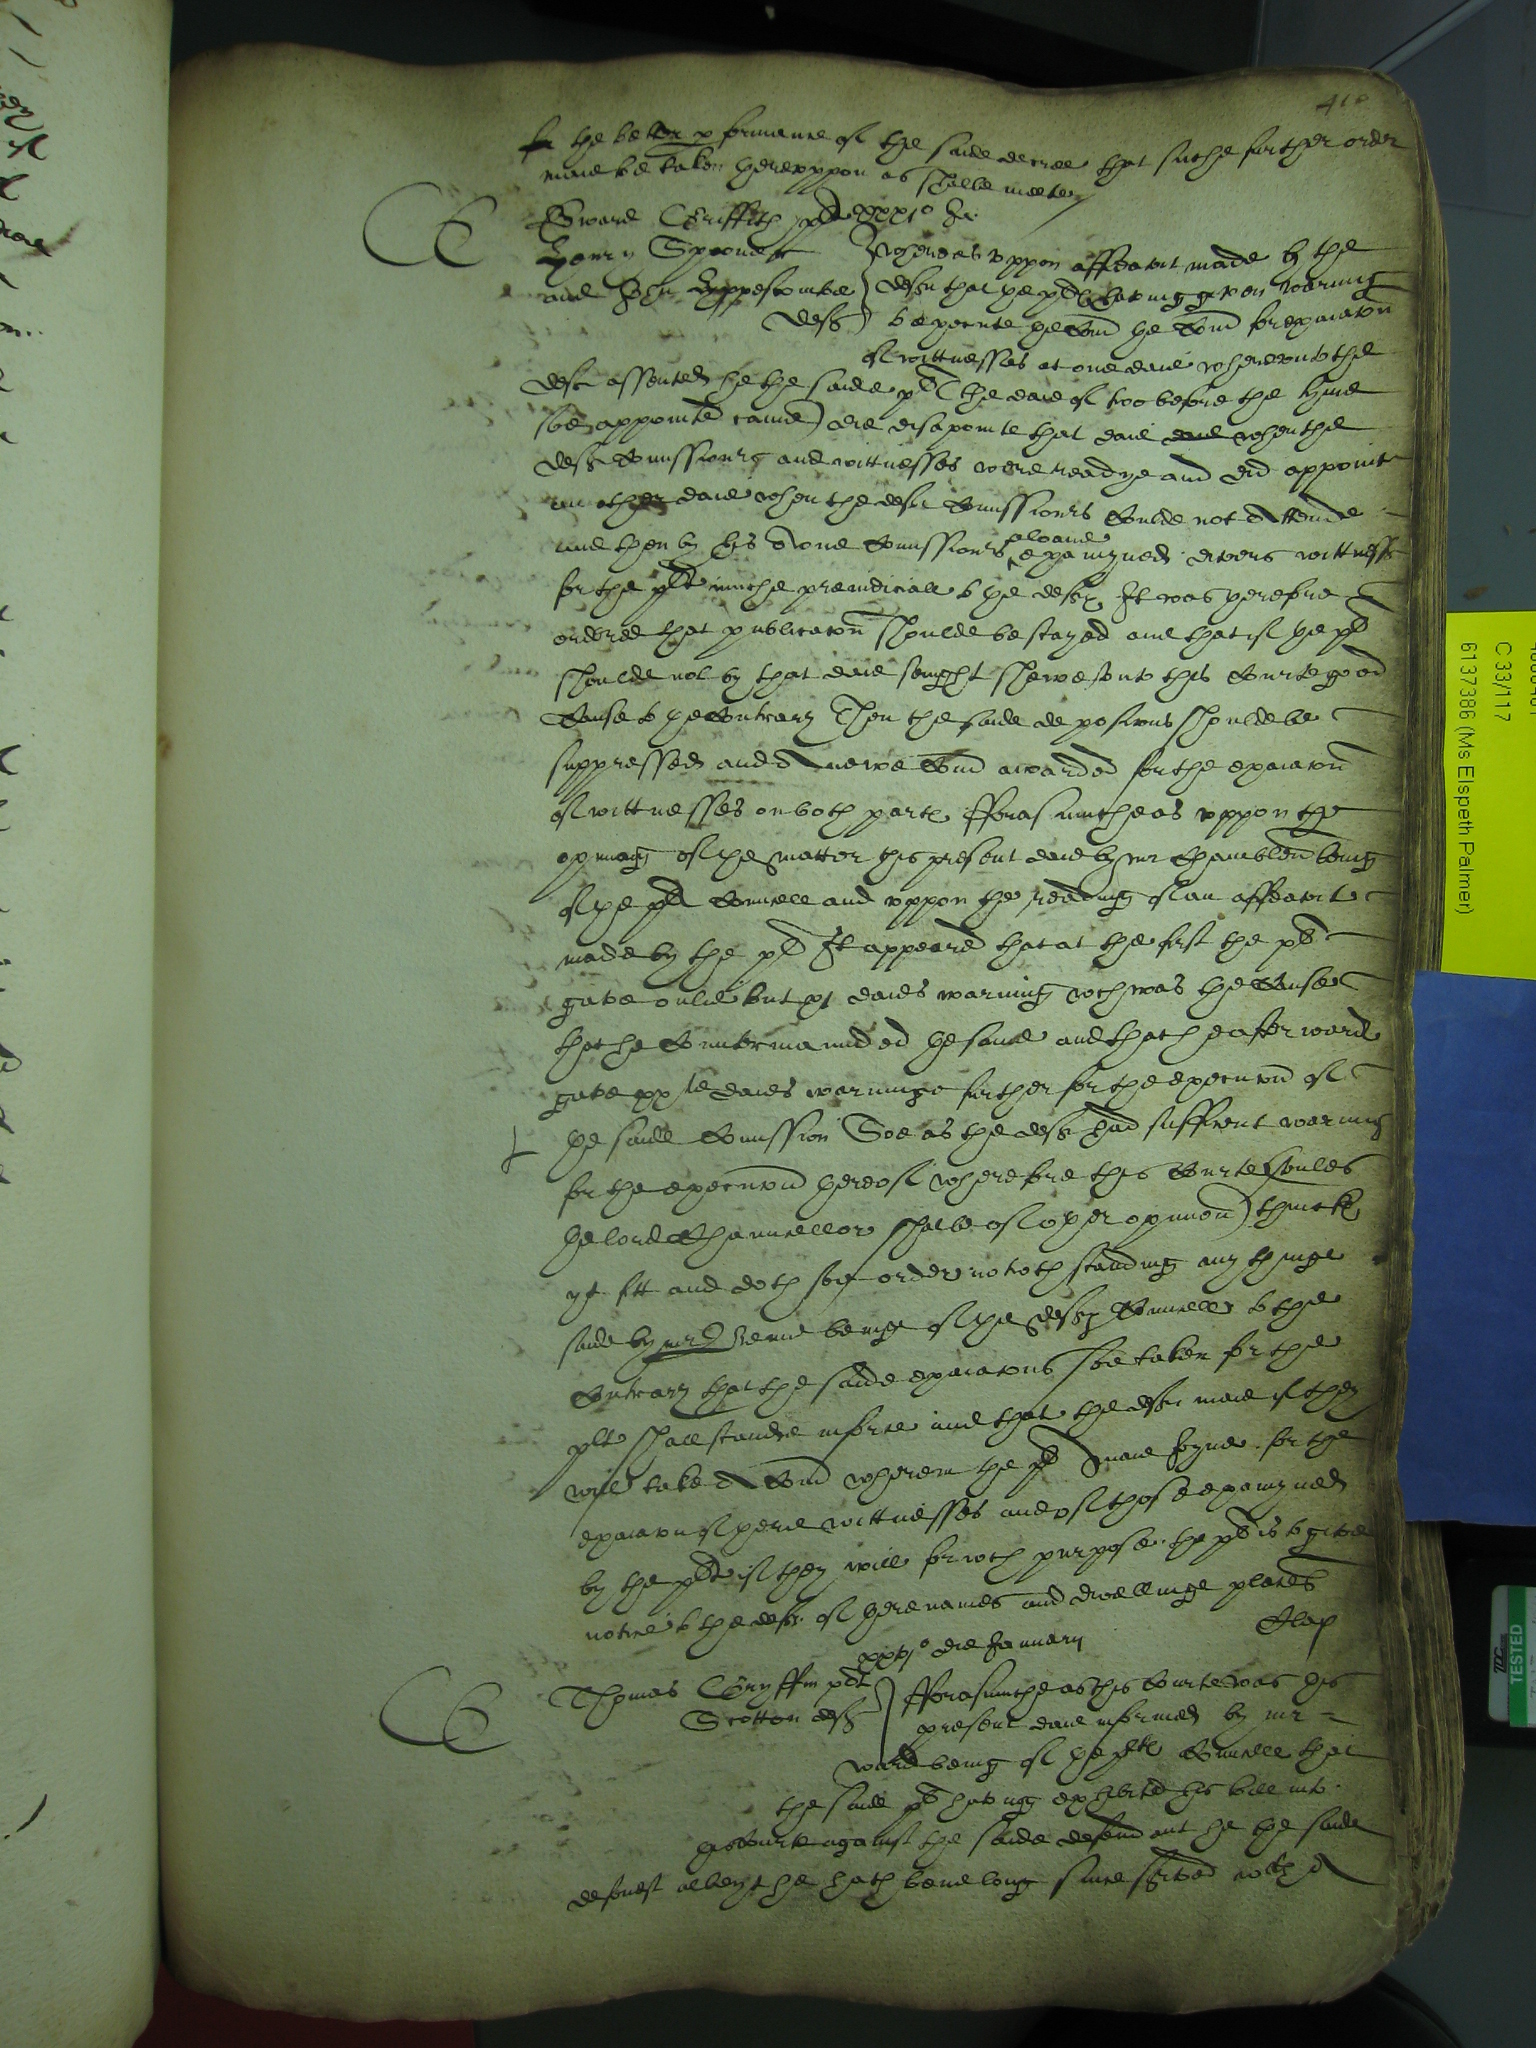 410
for the better pformance of the saide decree that suche further order
maie be taken hereuppon as shalbe meete
Edward Griffith plt xxxjo Ja:
Henry Spooner
and John Lippescombe
deftes
Whereas uppon affidavit made by the
deft that the plt having given warning
to execute the Com̄ the Com̄ for exaiacon
of wittnesses at one daie whereunto the
deft assented he the saide plt (the daie of two before the tyme
soe appointed came) did disapointe that daie daie when the
deftes Comissioners and wittnesses were readye and did appointe
an other daie when the deftes Comissioners Coulde not Attende
and then by his owne Comissioners aloane examyned divers wittnesses
for the plt muche preiudiciall to the deftes It was therefore
ordered that publicacon shoulde be stayed and that if the plt
shoulde not by that daie sennight shewe unto this Courte good
Cause to the Contrary Then the saide deposicons shoulde be
suppressed and A newe Com̄ awarded for the exaiacon
of wittnesses on both partes fforasmuche as uppon the
openinge of the matter this present daie by mr Chamblen being
of the plts Councell and uppon the reading of an affidavit
made by the plt It appeared that at the first the plt
gave onlie but xj daies warning wch was the Cause
that he Countermaunded the same and that he afterwards
gave xxtie daies warninge further for the execucon of
the saide Comission Soe as the deftes had sufficient warning
for the execucon thereof wherefore this Courte (unles
the lord Chauncellor shalbe of other opinion) thincks
yt fitt and doth soe order notwthstanding any thinge
saide by mr Hearne beinge of the deftes Councell to the
Contrary that the saide exaiacons soe taken for the
plt shall stande in force and that the deftes maie if they
will take A Com̄ wherein the plt maie Joyne for the
exaiacon of there wittnesses and of those examyned
by the plt if they will for wch purpose the plt is to give
notice to the deftes of there names and dwellinge places
Clap
xxxjo die January
Thomas Gryffin plt
Scotton deft
fforasmuche as this Courte was this
present daie informed by mr
Ward being of the plts Councell that
the saide plt having exhibited his bill into
this Courte against the saide defendant he the saide
defendt albeyt he hath bene long since served wth pro